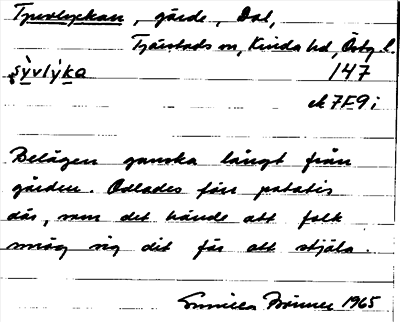 Tjuvlyckan, gärde, Dal,
Tjärstads sn, Kinda hd, Östg. l.
147
⁠7F9i
Belägen ganska långt från
gården. Odlades förr potatis
där, som det hände att folk
smög sig dit för att stjäla.
Gunilla 1965